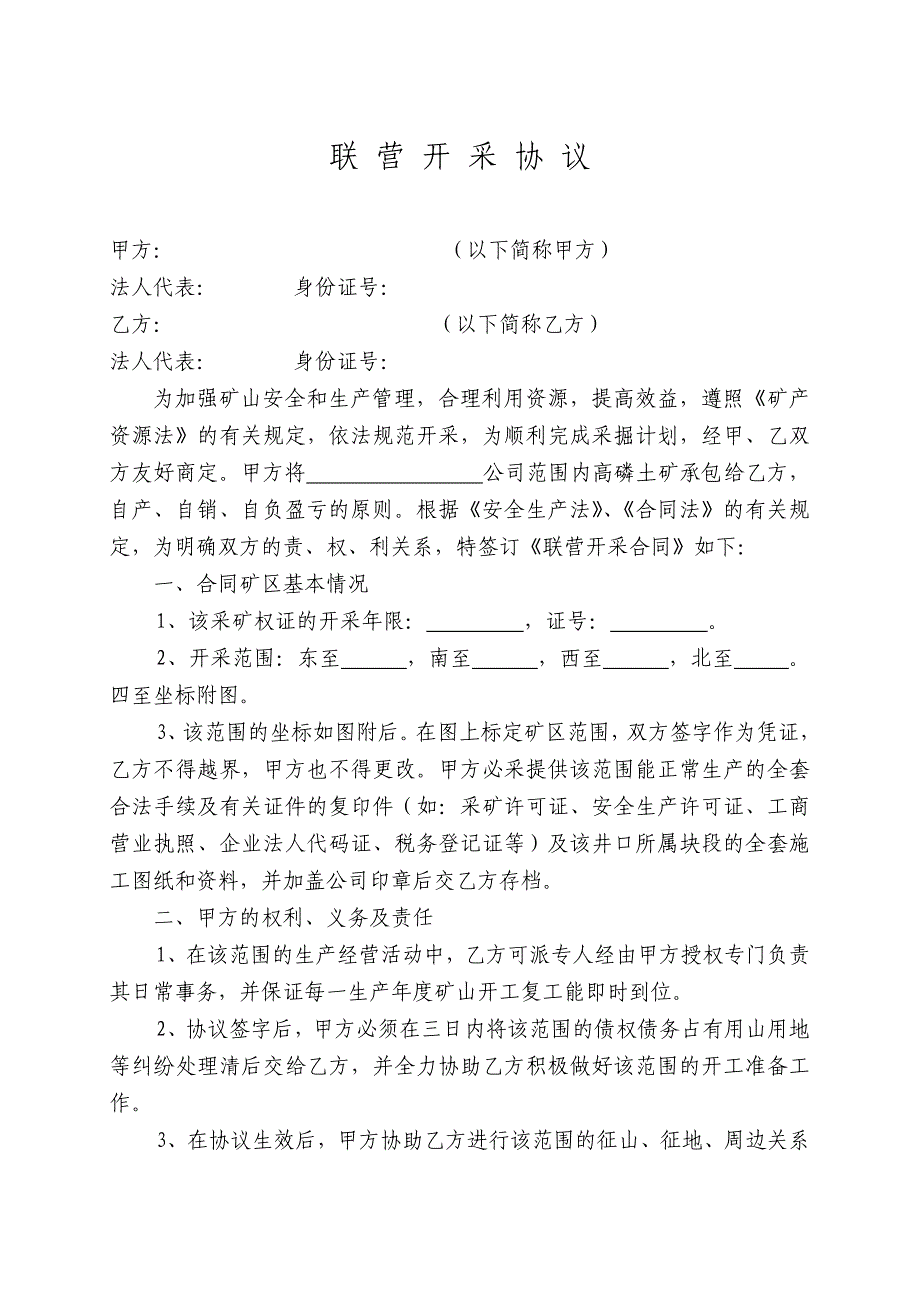 联营开采协议
甲方： （以下简称甲方）
法人代表： 身份证号：
乙方： （以下简称乙方）
法人代表： 身份证号：
为加强矿山安全和生产管理，合理利用资源，提高效益，遵照《矿产
资源法》的有关规定，依法规范开采，为顺利完成采掘计划，经甲、乙双
方友好商定。甲方将________________公司范围内高磷土矿承包给乙方，
自产、自销、自负盈亏的原则。根据《安全生产法》、《合同法》的有关规
定，为明确双方的责、权、利关系，特签订《联营开采合同》如下：
一、合同矿区基本情况
1、该采矿权证的开采年限：_________，证号：_________。
2、开采范围：东至______，南至______，西至______，北至_____。
四至坐标附图。
3、该范围的坐标如图附后。在图上标定矿区范围，双方签字作为凭证，
乙方不得越界，甲方也不得更改。甲方必采提供该范围能正常生产的全套
合法手续及有关证件的复印件（如：采矿许可证、安全生产许可证、工商
营业执照、企业法人代码证、税务登记证等）及该井口所属块段的全套施
工图纸和资料，并加盖公司印章后交乙方存档。
二、甲方的权利、义务及责任
1、在该范围的生产经营活动中，乙方可派专人经由甲方授权专门负责
其日常事务，并保证每一生产年度矿山开工复工能即时到位。
2、协议签字后，甲方必须在三日内将该范围的债权债务占有用山用地
等纠纷处理清后交给乙方，并全力协助乙方积极做好该范围的开工准备工
作。
3、在协议生效后，甲方协助乙方进行该范围的征山、征地、周边关系